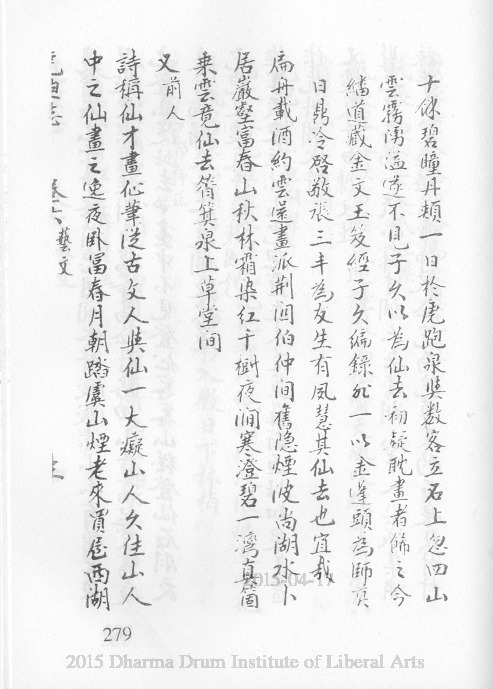 十餘碧瞳丹頰一日於虎跑泉與數客立石上忽四山
雲霧湧溢遂不見子久以為仙去初疑耽畫者飾之今
繙道藏金文玉笈經子久編錄非一以金蓬頭為師莫
月鼎冷啓敬張三丰為友生有夙慧其仙去也宜哉
扁舟載酒約雲遊畫派荆關伯仲間舊隐煙波尚湖水卜
居巖壑富春山秋林霜染紅千樹夜澗寒澄碧一灣真箇
乘雲竟仙去箬箕泉上草堂間
又前人
詩稱仙才畫仙筆從古文人與仙一大癡山人久住山人
中之仙畫之逸夜臥富春月朝踏虞山煙老來買屋西湖
卷六 藝文
2015-04-17
279
2015 Dharma Drum Institute of Liberal Arts